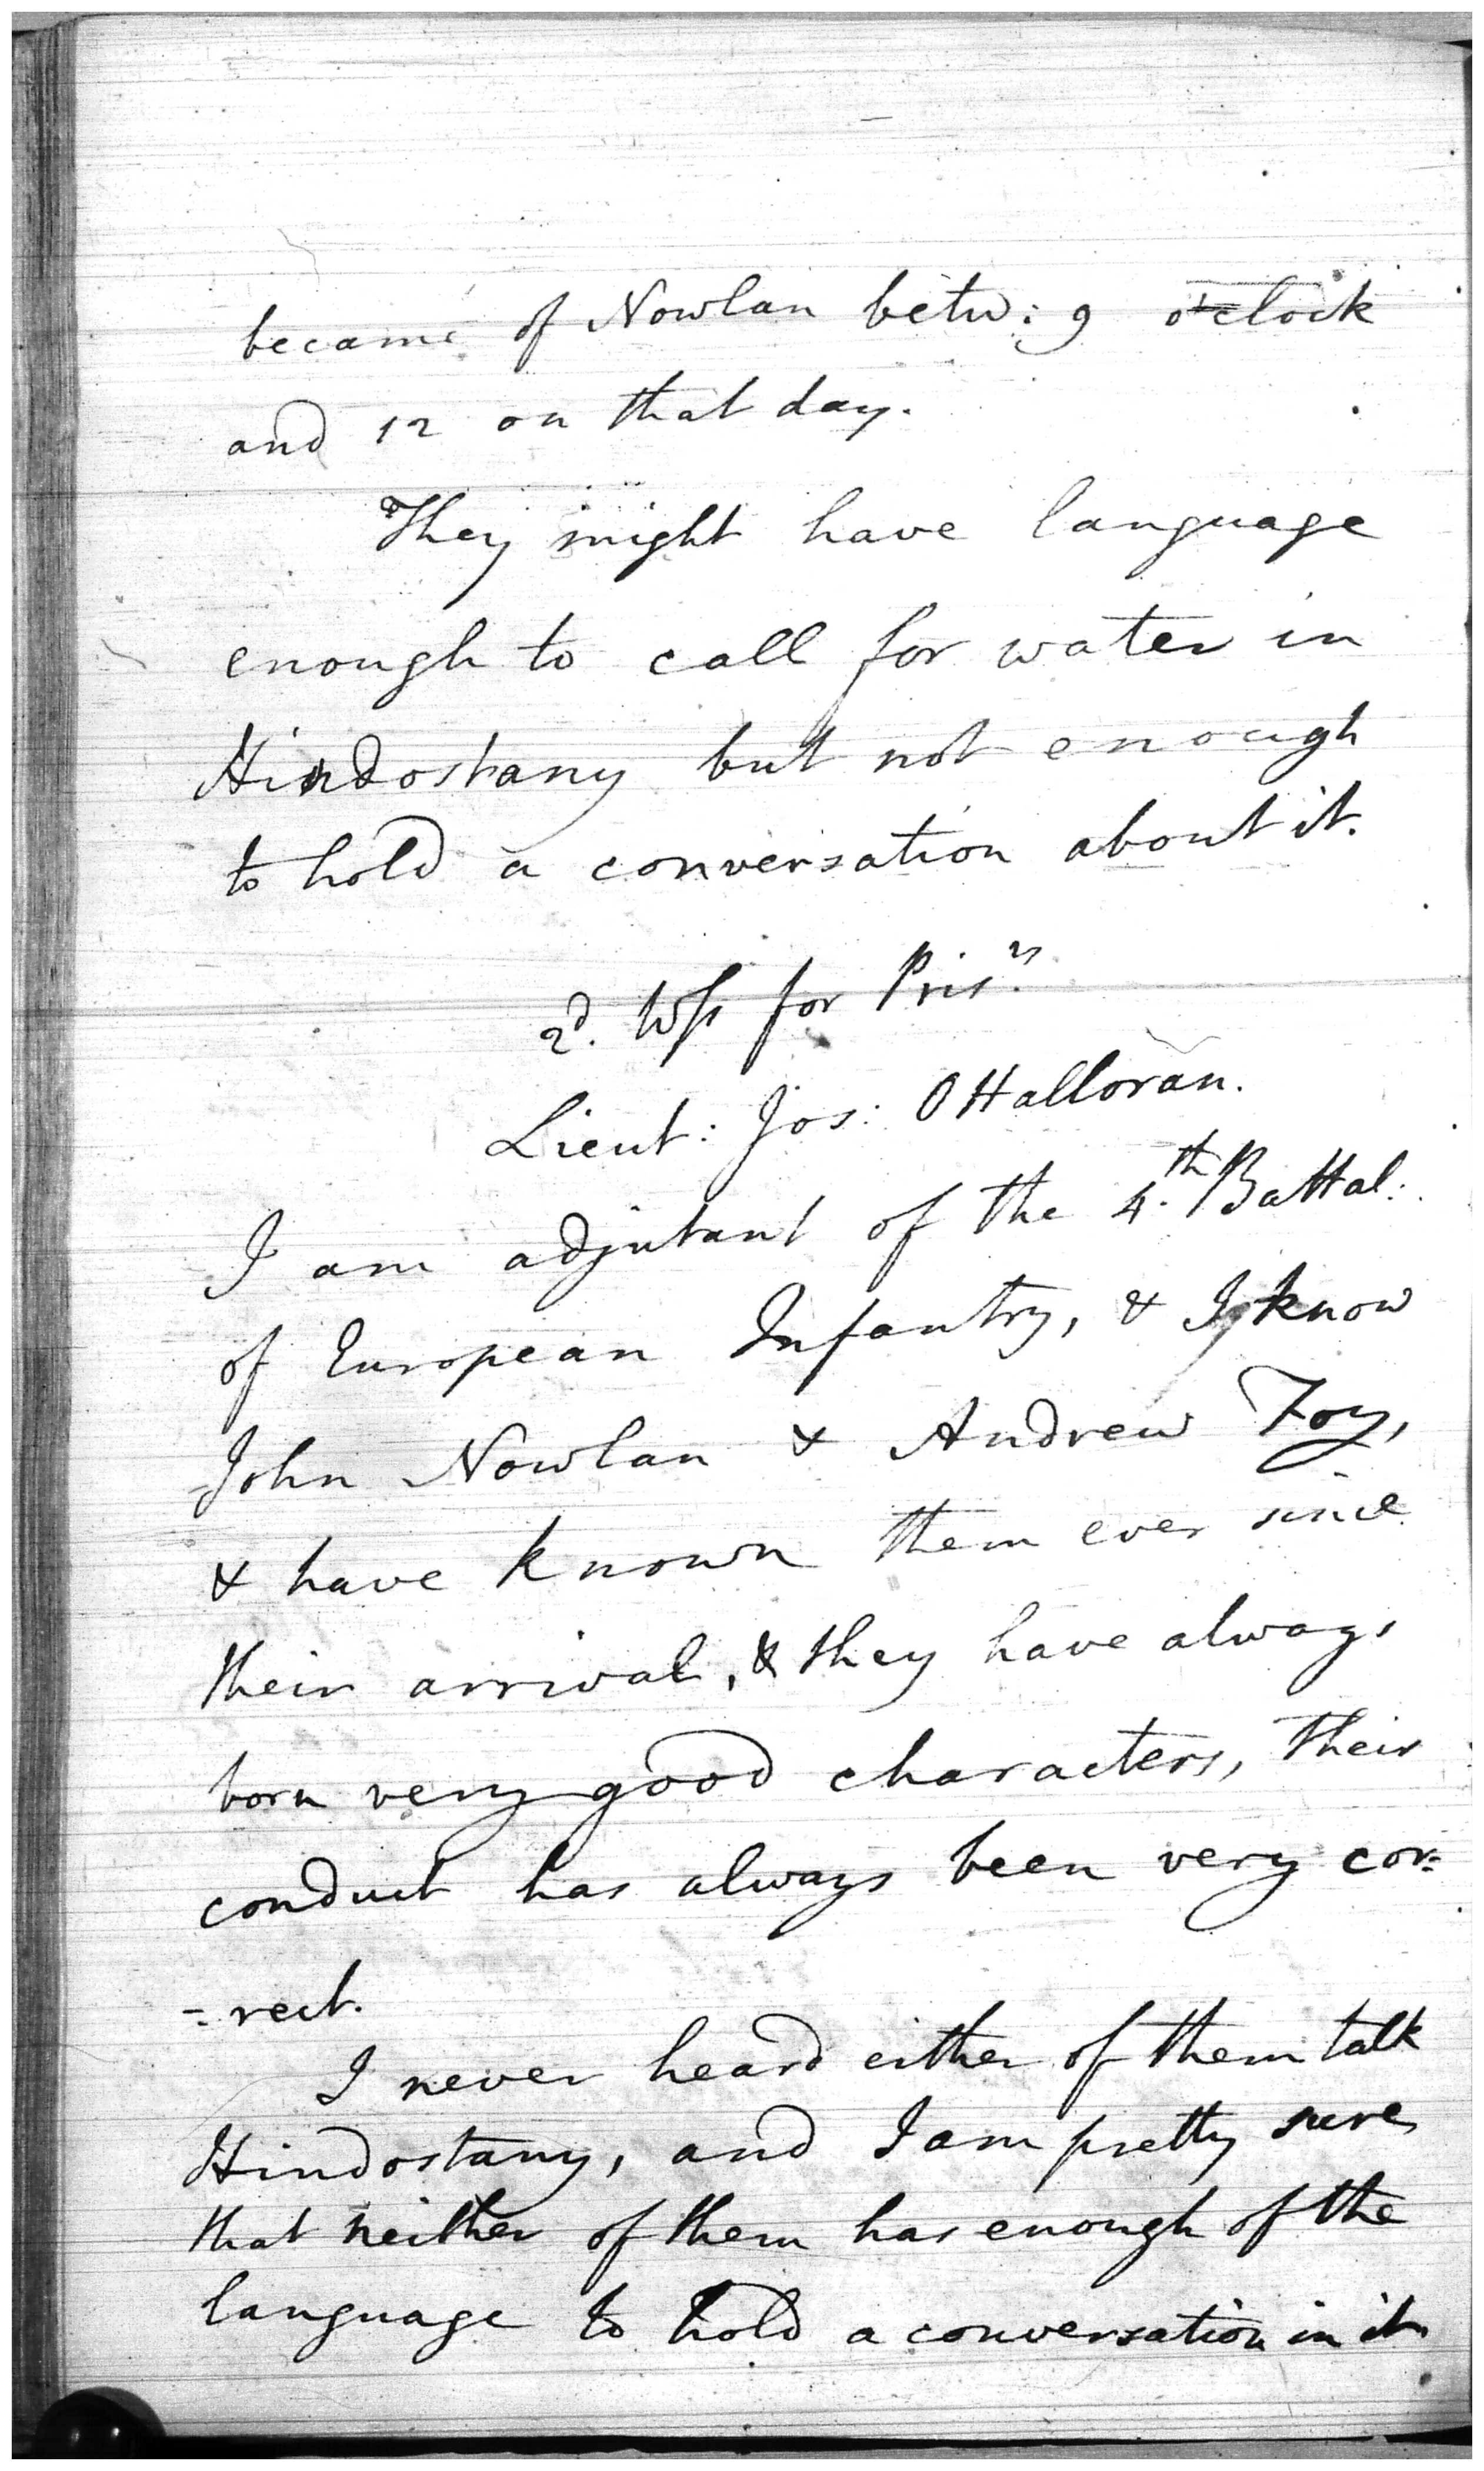 became of Nowlan betw: 9 o'clock
and 12 on that day.
They might have language
enough to call for water in
Hindostany but not enough
to hold a conversation about it.
2d. Wss for Prisrs
Lieut: Jos: OHalloran.
I am adjutant of the 4.th Battal:
of European Infantry, & I know
John Nowlan & Andrew Foy,
& have known them ever since
their arrival, & they have always
born very good characters, their
conduct has always been very cor=
=rect.
I never heard either of them talk
Hindostany, and I am pretty sure
that neither of them has enough of the
language to hold a conversation in it